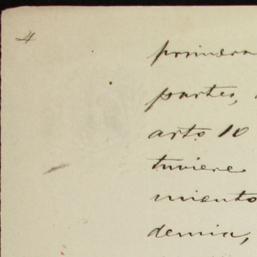 4
primera
partes,
arto 10
tuviere
miento
demia,